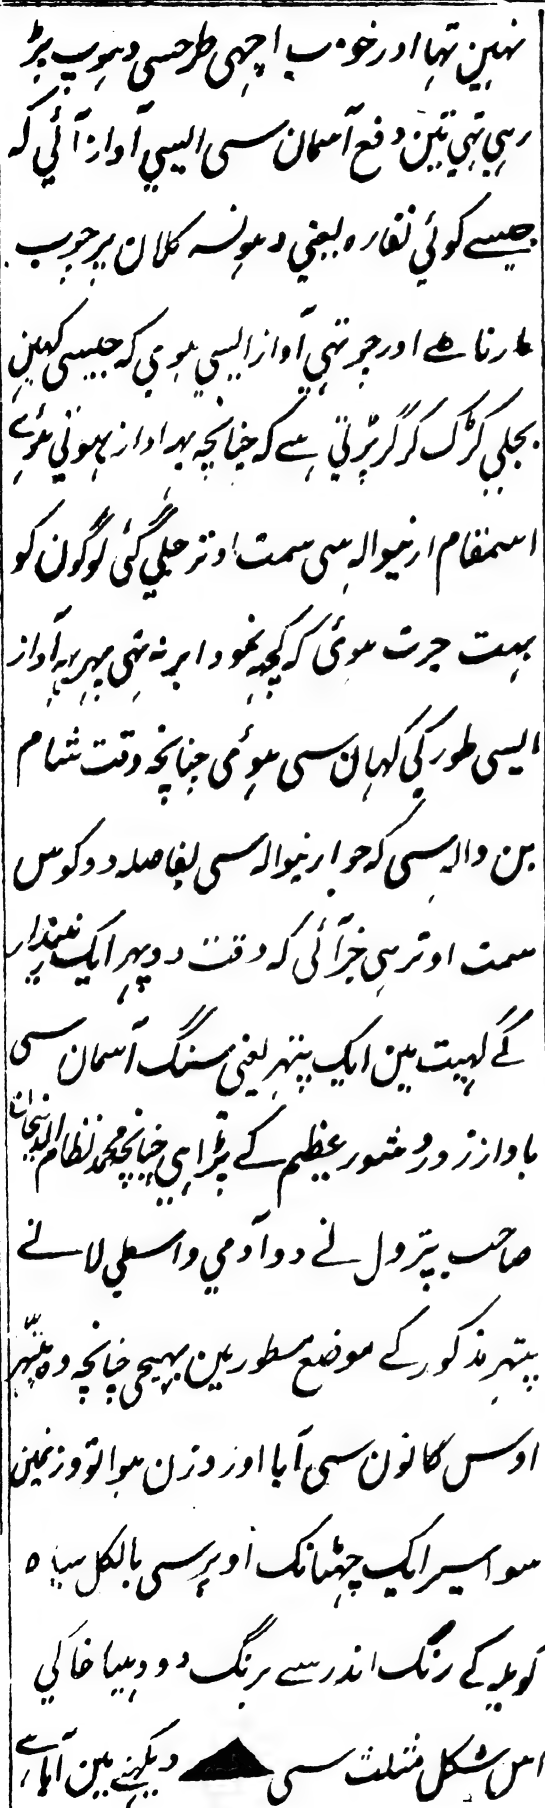 نہین تہا اور خوب اچہی طرحسی دہوپ پڑ
رہی تہی تین دفع آسمان سی ایسي آواز آئي کہ
جیسے کوئي نقارہ یعني دہونسہ کلان پر چوب
مارتا ہے اور چوتہي آواز ایسي ہوي کہ جیسی کہین
بجلي کڑک کر گر پڑتي ہے کہ چنانچہ یہہ اواز ہوتي ہوئے
اسمقام ارنیوالہ سی سمت اوتر چلي گئی لوگون کو
بہت حیرت ہوئی کہ کچہہ نمود ابر نہ تہی پہر یہہ آواز
ایسی طور کي کہان سی ہوئمی چنانچہ وقت شام
بن والہ سی کہ جو ارنیوالہ سی بفاصلہ دو کوس
سمت اوتر ہی خبر آئی کہ وقت دوپہر ایک زمیندار
کے کہیت مین ایک پتہر یعنی سنگ آسمان سی
باواز زور و شور عظیم کے پڑا ہی چنانچہ محمد نظام الدینخان
صاحب پترول نے دو آدمي واسطي لانے
پتہر مذکور کے موضع مسطور مین بہیجی چنانچہ وہ پتہر
اوس گانون سی آیا اور وزن ہوا تو وزنمین
سوا سیر ایک چہٹانک اوپر سی بالکل سیاہ
کویلہ کے رنگ اندر سے برنگ دودہیا خاکي
اس شکل مثلث سی دیکہنے مین آیا ہے